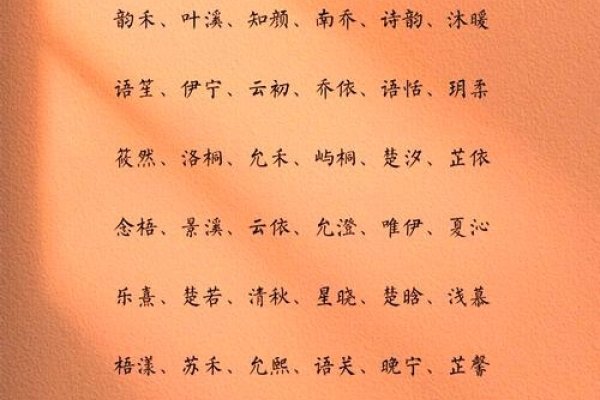 韵禾、叶溪、知颜、南乔、诗韵、沐暖
语笙、伊宁、云初、乔依、语恬、玥柔
筱然、洛桐、允禾、屿桐、楚汐、芷依
念梧、景溪、云依、允澄、唯伊、夏沁
乐熹、楚若、清秋、星晓、楚晗、浅慕
梧漾、苏禾、允熙、语关、晚宁、芷馨